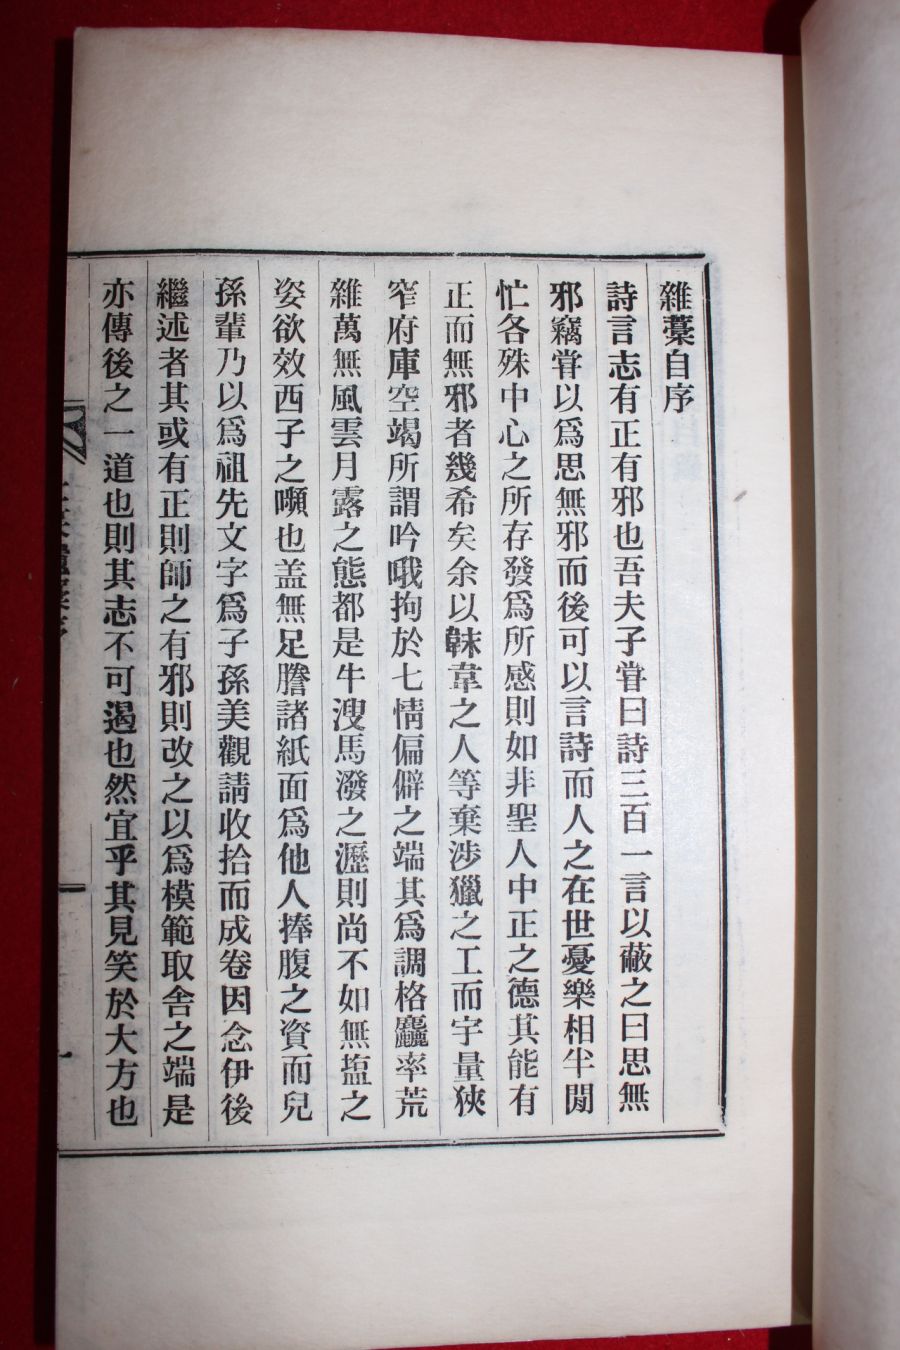 雜藁自序
詩言志有正有邪也吾夫子甞曰詩三百一言以蔽之曰思無
邪竊甞以爲思無邪而後可以言詩而人之在世憂樂相半閒
忙各殊中心之所存發爲所感則如非聖人中正之德其能有
正而無邪者幾希矣余以韎韋之人等棄涉獵之工而宇量狹
窄府庫空竭所謂吟哦拘於七情偏僻之端其爲調格麤率荒
雜萬無風雲月露之態都是牛溲馬潑之瀝則尚不如無塩之
姿欲效西子之嚬也盖無足謄諸紙面爲他人捧腹之資而兒
孫輩乃以爲祖先文字爲子孫美觀請收拾而成卷因念伊後
繼述者其或有正則師之有邪則改之以爲模範取舍之端是
亦傳後之一道也則其志不可遏也然宜乎其見笑於大方也